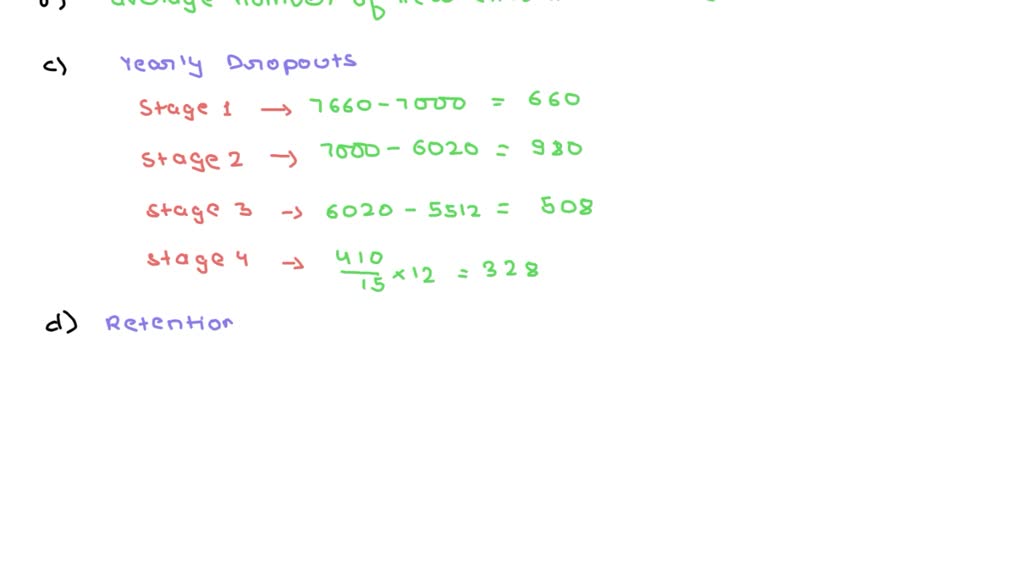 c) Yearly Dropouts
Stage 1 → 7660 - 7000 = 660
Stage 2 → 7000 - 6020 = 980
Stage 3 → 6020 - 5512 = 508
Stage 4 → 410/15 × 12 = 328
d) Retention